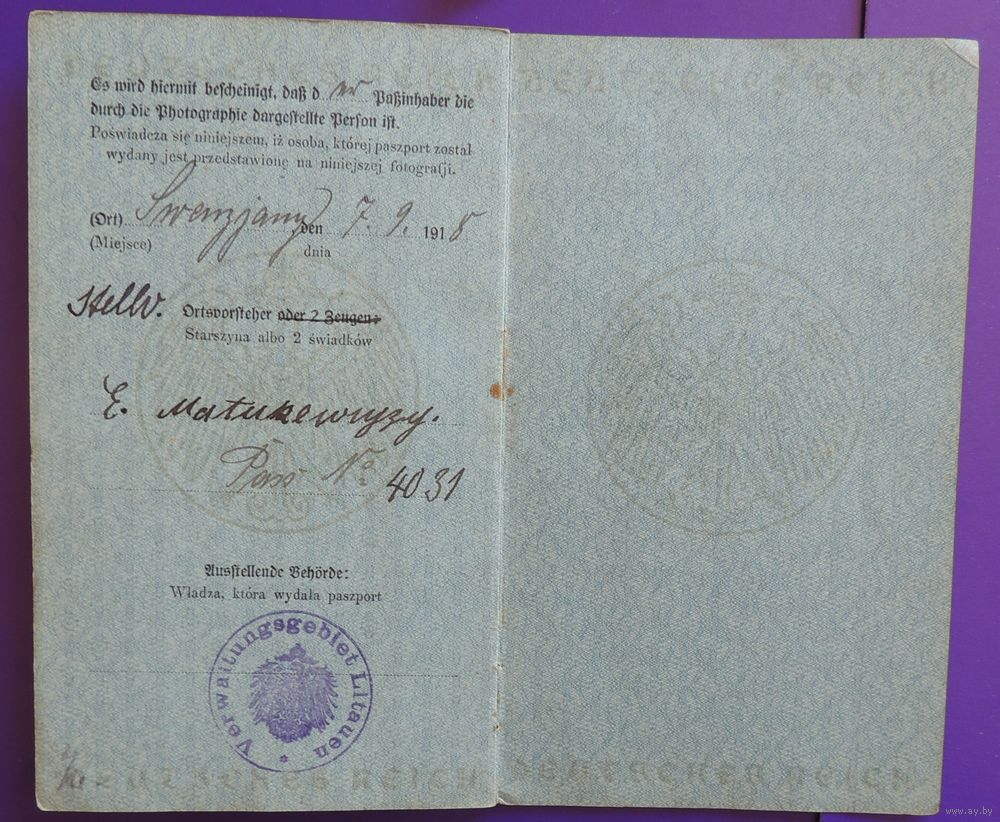 DEUTSCHES REICH DEUTSCHES REICH
Es wird hiermit bescheinigt, daß d er Paßinhaber die
durch die Photographie dargestellte Person ist.
Poświadcza się niniejszem, iż osoba, której paszport został
wydany jest przedstawione na niniejszej fotografji.
(Ort) Swenzjany den 7. 9. 1918
(Miejsce) dnia
Stellv. Ortsvorsteher oder 2 Zeugen:
Starszyna albo 2 świadków
E. Matukewiyzy.
Pass No. 4031
Ausstellende Behörde:
Władza, która wydała paszport
Verwaltungsgebiet Litauen *
DEUTSCHES REICH DEUTSCHES REICH
www.ay.by